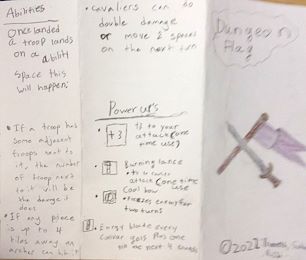 Abilities
Once landed
a troop lands
on a ability
space this
will happen:
• If a troop has
same adjacent
troops next to
it, the number
of troop next
to it will be
the damage it
does
• If any piece is
up to 4
tiles away an
archer can hit it
• cavaliers can do
double damage
or move 2 spaces
on the next turn
Power ups
+3
+3 to your
attack (one
time use)
Burning lance
attack (one time
use)
Cool bow
freezes enemy for
two turns
• Energy blade every
plus one
the next 4
Dungeon
Flag
©2022